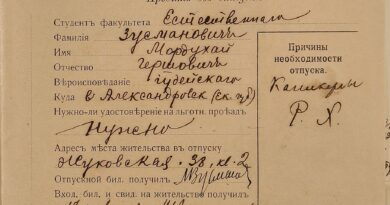 Студентъ факультета Естественнаго
Фамилія Зусмановичъ
Имя Мордухай
Отчество Гершовичъ
Вѣроисповѣданіе Іудейскаго
Куда въ Александровск (Ек. губ)
Нужно-ли удостовѣреніе на льготн. проѣздъ
Нужно
Адресъ мѣста жительства въ отпуску
Жуковская. 38. кв. 2
Отпускной бил. получилъ
Вход. бил. и свид. на жительство получилъ
Причины
необходимости
отпуска.
Каникулы
Р. Х.